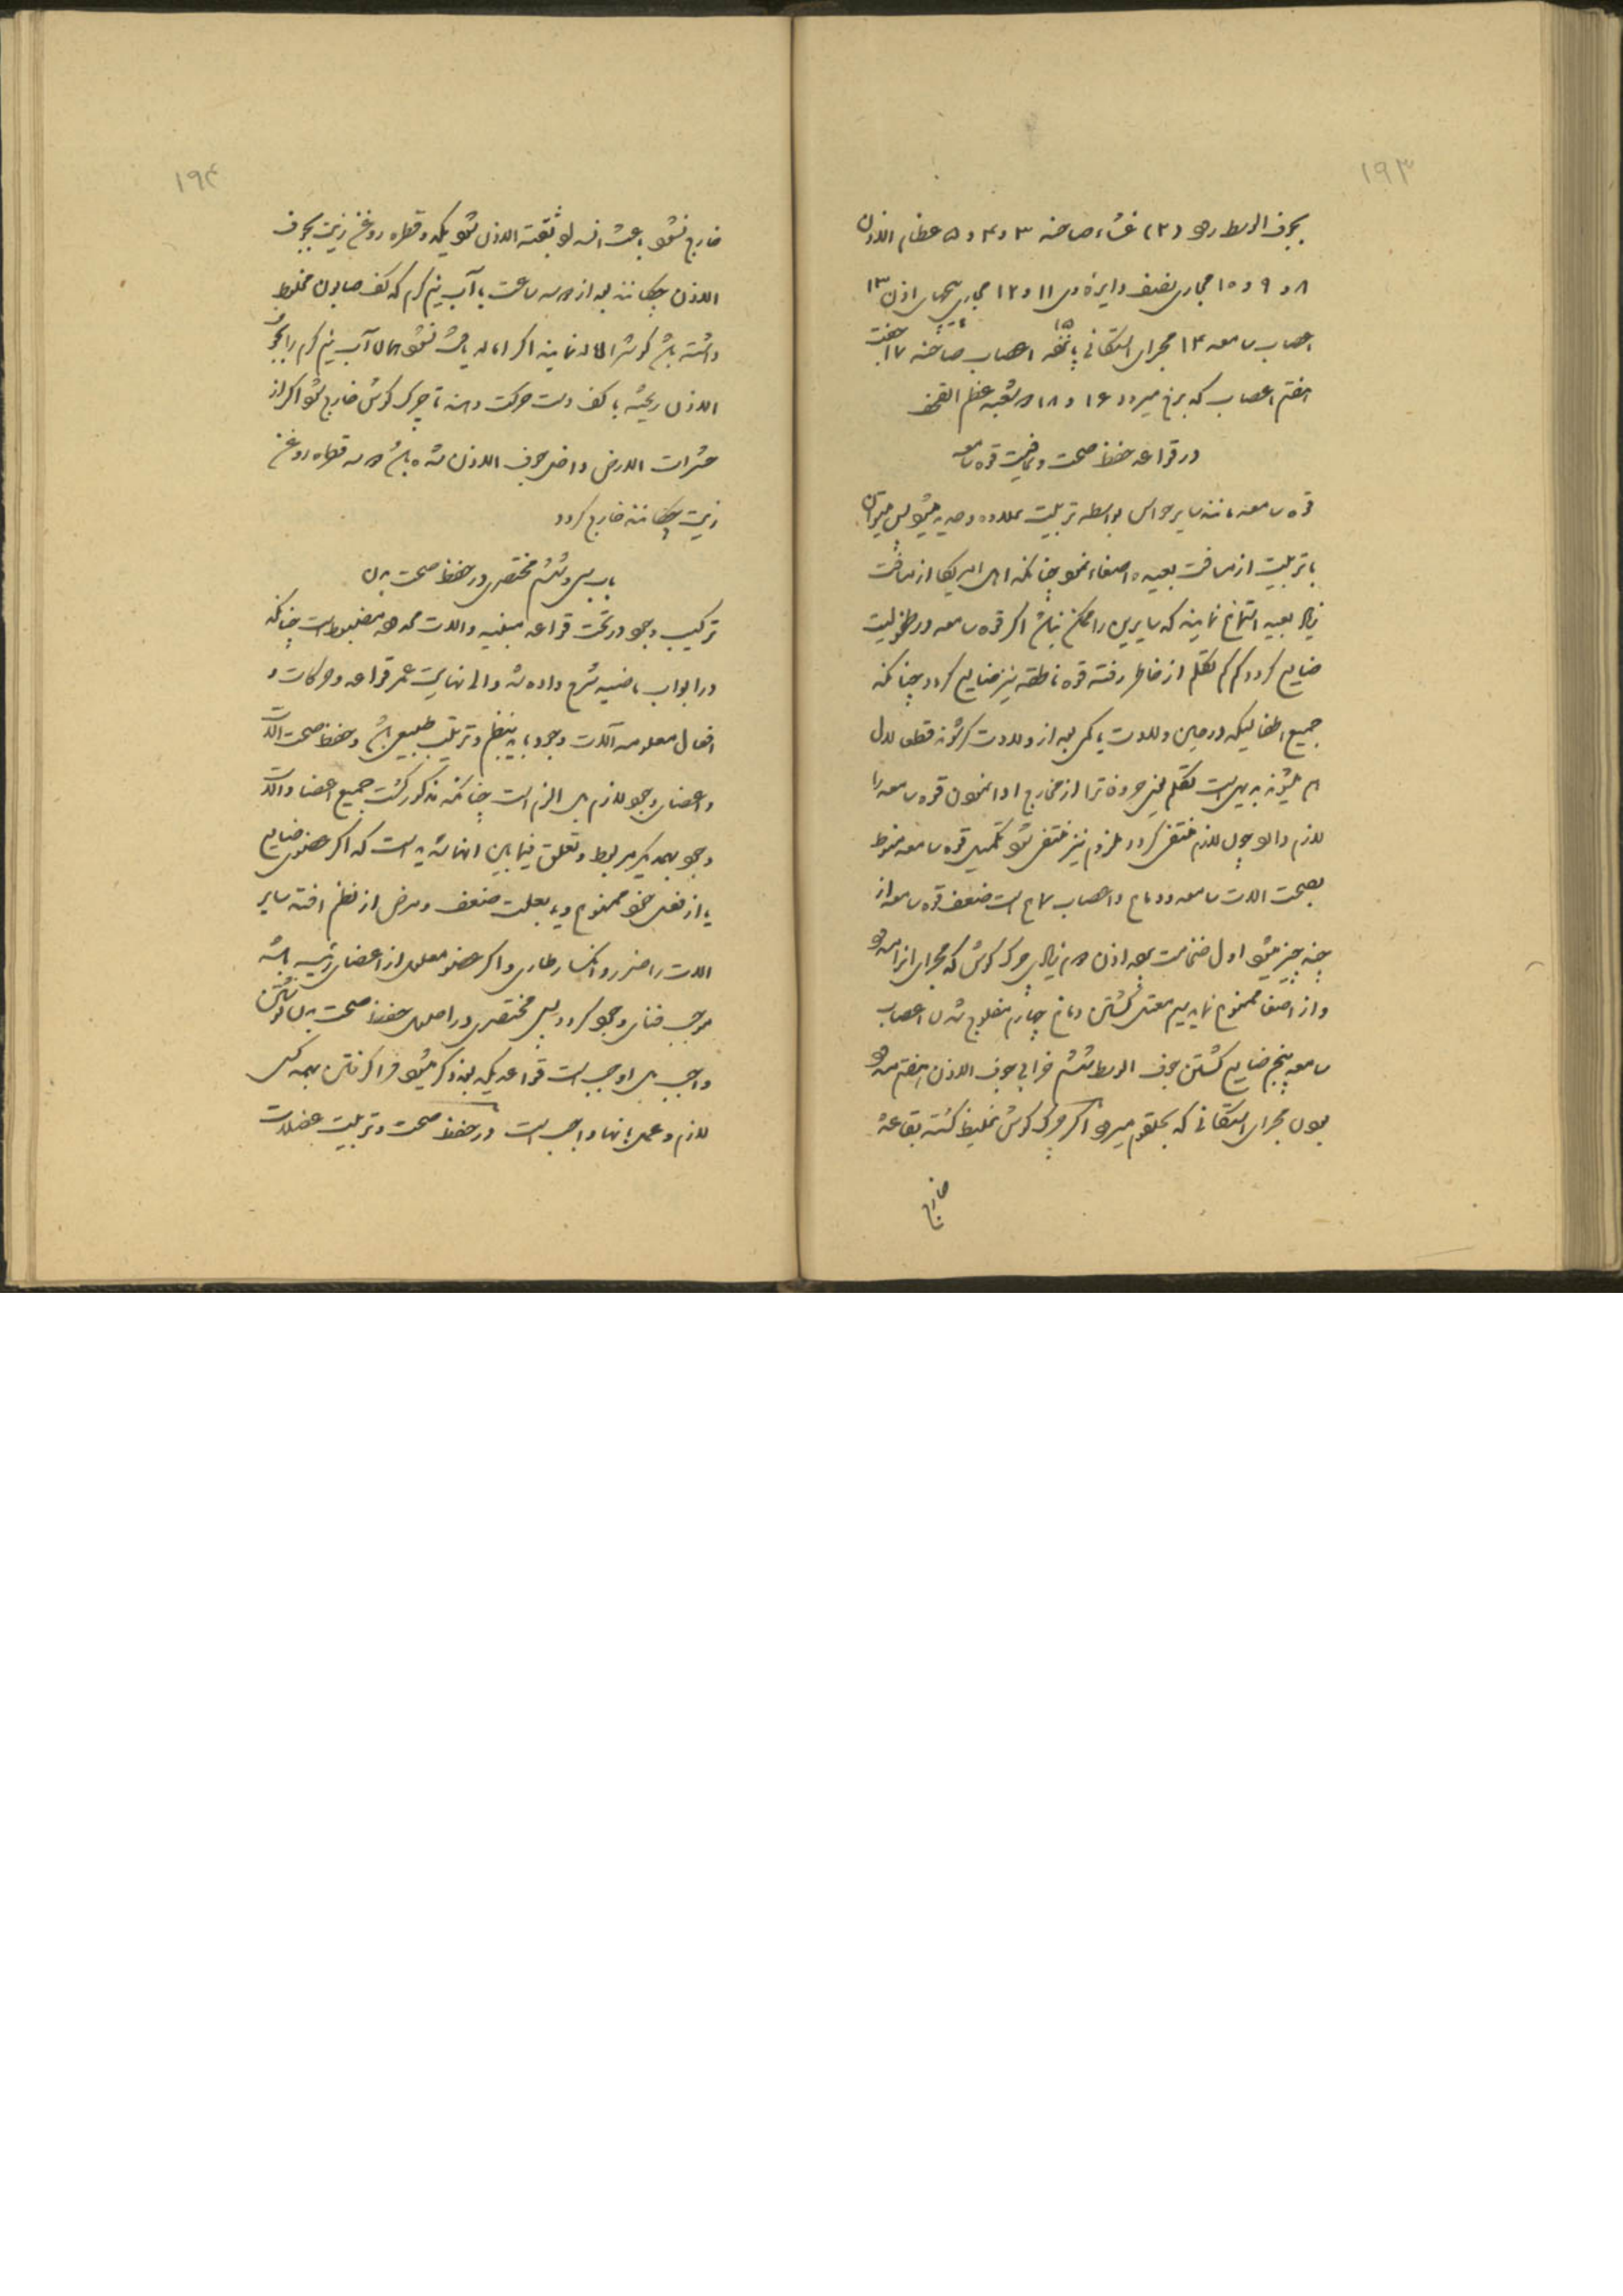 ۱۹۳
بجوف الوسط رود (۲) غشاء صاخه ۳ و ۴ و ۵ عظام الاذن
۸ و ۹ و ۱۰ مجاری نصف دایره وی ۱۱ و ۱۲ مجاری اذن ۱۳
اعصاب سامعه ۱۴ مجرای استقانی ۱۵ یا نفخه اعصاب صاخه ۱۷ جفت
هفتم اعصاب که برخ میرود ۱۶ و ۱۸ شعبه عظم القحف
در قواعد حفظ صحت و عافیت قوه سامعه
قوه سامعه مانند سایر حواس بواسطه تربیت میشود پس میتوان
با تربیت از مسافت بعیده اصغاء نمود چنانکه اهل امریکا از مسافت
زیاد بعید استماع نمایند که سایرین را ممکن نباشد اگر قوه سامعه در طفولیت
ضایع گردد کم کم تکلم از خاطر رفته قوه ناطقه نیز ضایع گردد چنانکه
جمیع اطفالیکه در حین ولادت یا کمی بعد از ولادت کر شوند قطعا لال
هم میشوند بدیهی است تکلم یعنی حروف را از مخارج ادا نمودن قوه سامعه را
لازم دارد چون لازم منتفی گردد ملزوم نیز منتفی شود تکمیل قوه سامعه منوط
بصحت الات سامعه و دماغ و اعصاب سماع است ضعف قوه سامعه از
چند چیز میشود اول ضخامت اذن دوم زیادی چرک گوش که مجرای انرا سد
و از اصغا ممنوع نماید سیم معتل گشتن دماغ چهارم مفلوج شدن اعصاب
سامعه پنجم ضایع گشتن جوف الوسط ششم خرابی جوف الاذن هفتم مسدود
بودن مجرای استقانی که بحلقوم میرود اگر چرک گوش غلیظ گشته بقاعده
خارج
۱۹۴
خارج نشود باعث انسداد ثقبة الاذن شود یکدو قطره روغن زیت بجوف
الاذن چکانند بعد از دو سه ساعت با آب نیم گرم که کف صابون مخلوط
داشته باشد گوش را اماله نمایند اگر اماله یافت نشود همان آب نیم گرم را بجوف
الاذن ریخته با کف دست حرکت دهند تا چرک گوش خارج شود اگر از
حشرات الارض داخل جوف الاذن شده باشد دو سه قطره روغن
زیت چکانند خارج گردد
باب سی و ششم مختصری در حفظ صحت بدن
ترکیب وجود در تحت قواعد مبنیه و الات ممدوه مضبوط است چنانکه
در ابواب ماضیه شرح داده شد والی نهایت عمر قواعد و حرکات و
افعال معلومه آلات وجود باید بنظم و ترتیب طبیعی باشد و حفظ صحت الات
و اعضای وجود لازم بل الزم است چنانکه مذکور گشت جمیع اعضا و الات
وجود بهمدیگر مربوط و تعلق فیمابین انها شدید است که اگر عضوی ضایع
یا از فعل خود ممنوع و یا بعلت ضعف و مرض از نظم افتد سایر
الات را ضرر و انکسار طاری و اگر عضو معلول از اعضای رئیسه باشد
موجب فنای وجود گردد پس مختصری در اصول حفظ صحت بدن نوشتن
واجب بل اوجب است قواعدیکه بعد ذکر میشود فراگرفتن بهمه کس
لازم و عمل بانها واجب است در حفظ صحت و تربیت عضلات